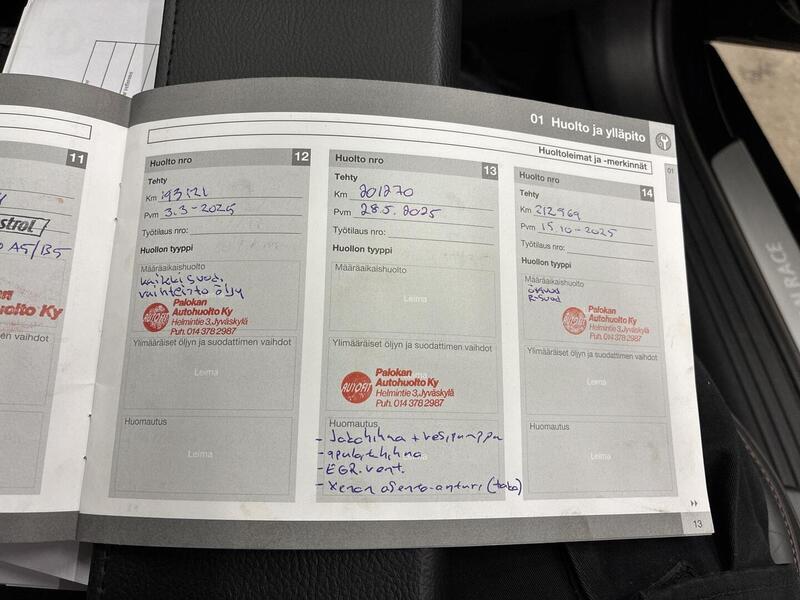 01 Huolto ja ylläpito
Huoltoleimat ja -merkinnät
01
11
strol
A5/B5
huolto Ky
dattimen vaihdot
Huolto nro 12
Tehty
Km 193121
Pvm 3.3-2025
Työtilaus nro:
Huollon tyyppi
Määräaikaishuolto
kaikki suod.
vaihteisto öljy
AUTOFIT
Palokan
Autohuolto Ky
Helmintie 3, Jyväskylä
Puh. 014 378 2987
Ylimääräiset öljyn ja suodattimen vaihdot
Leima
Huomautus
Leima
Huolto nro 13
Tehty
Km 201270
Pvm 28.5.2025
Työtilaus nro:
Huollon tyyppi
Määräaikaishuolto
Leima
Ylimääräiset öljyn ja suodattimen vaihdot
AUTOFIT
Palokan
Autohuolto Ky
Helmintie 3, Jyväskylä
Puh. 014 378 2987
Huomautus
- Jakohihna + vesipumppu
- apulaitehihna
- EGR. vent.
- Xenon asento-anturi (taka)
Huolto nro 14
Tehty
Km 212969
Pvm 15.10-2025
Työtilaus nro:
Huollon tyyppi
Määräaikaishuolto
R-suod
AUTOFIT
Palokan
Autohuolto Ky
Helmintie 3, Jyväskylä
Puh. 014 378 2987
Ylimääräiset öljyn ja suodattimen vaihdot
Leima
Huomautus
Leima
13
RACE